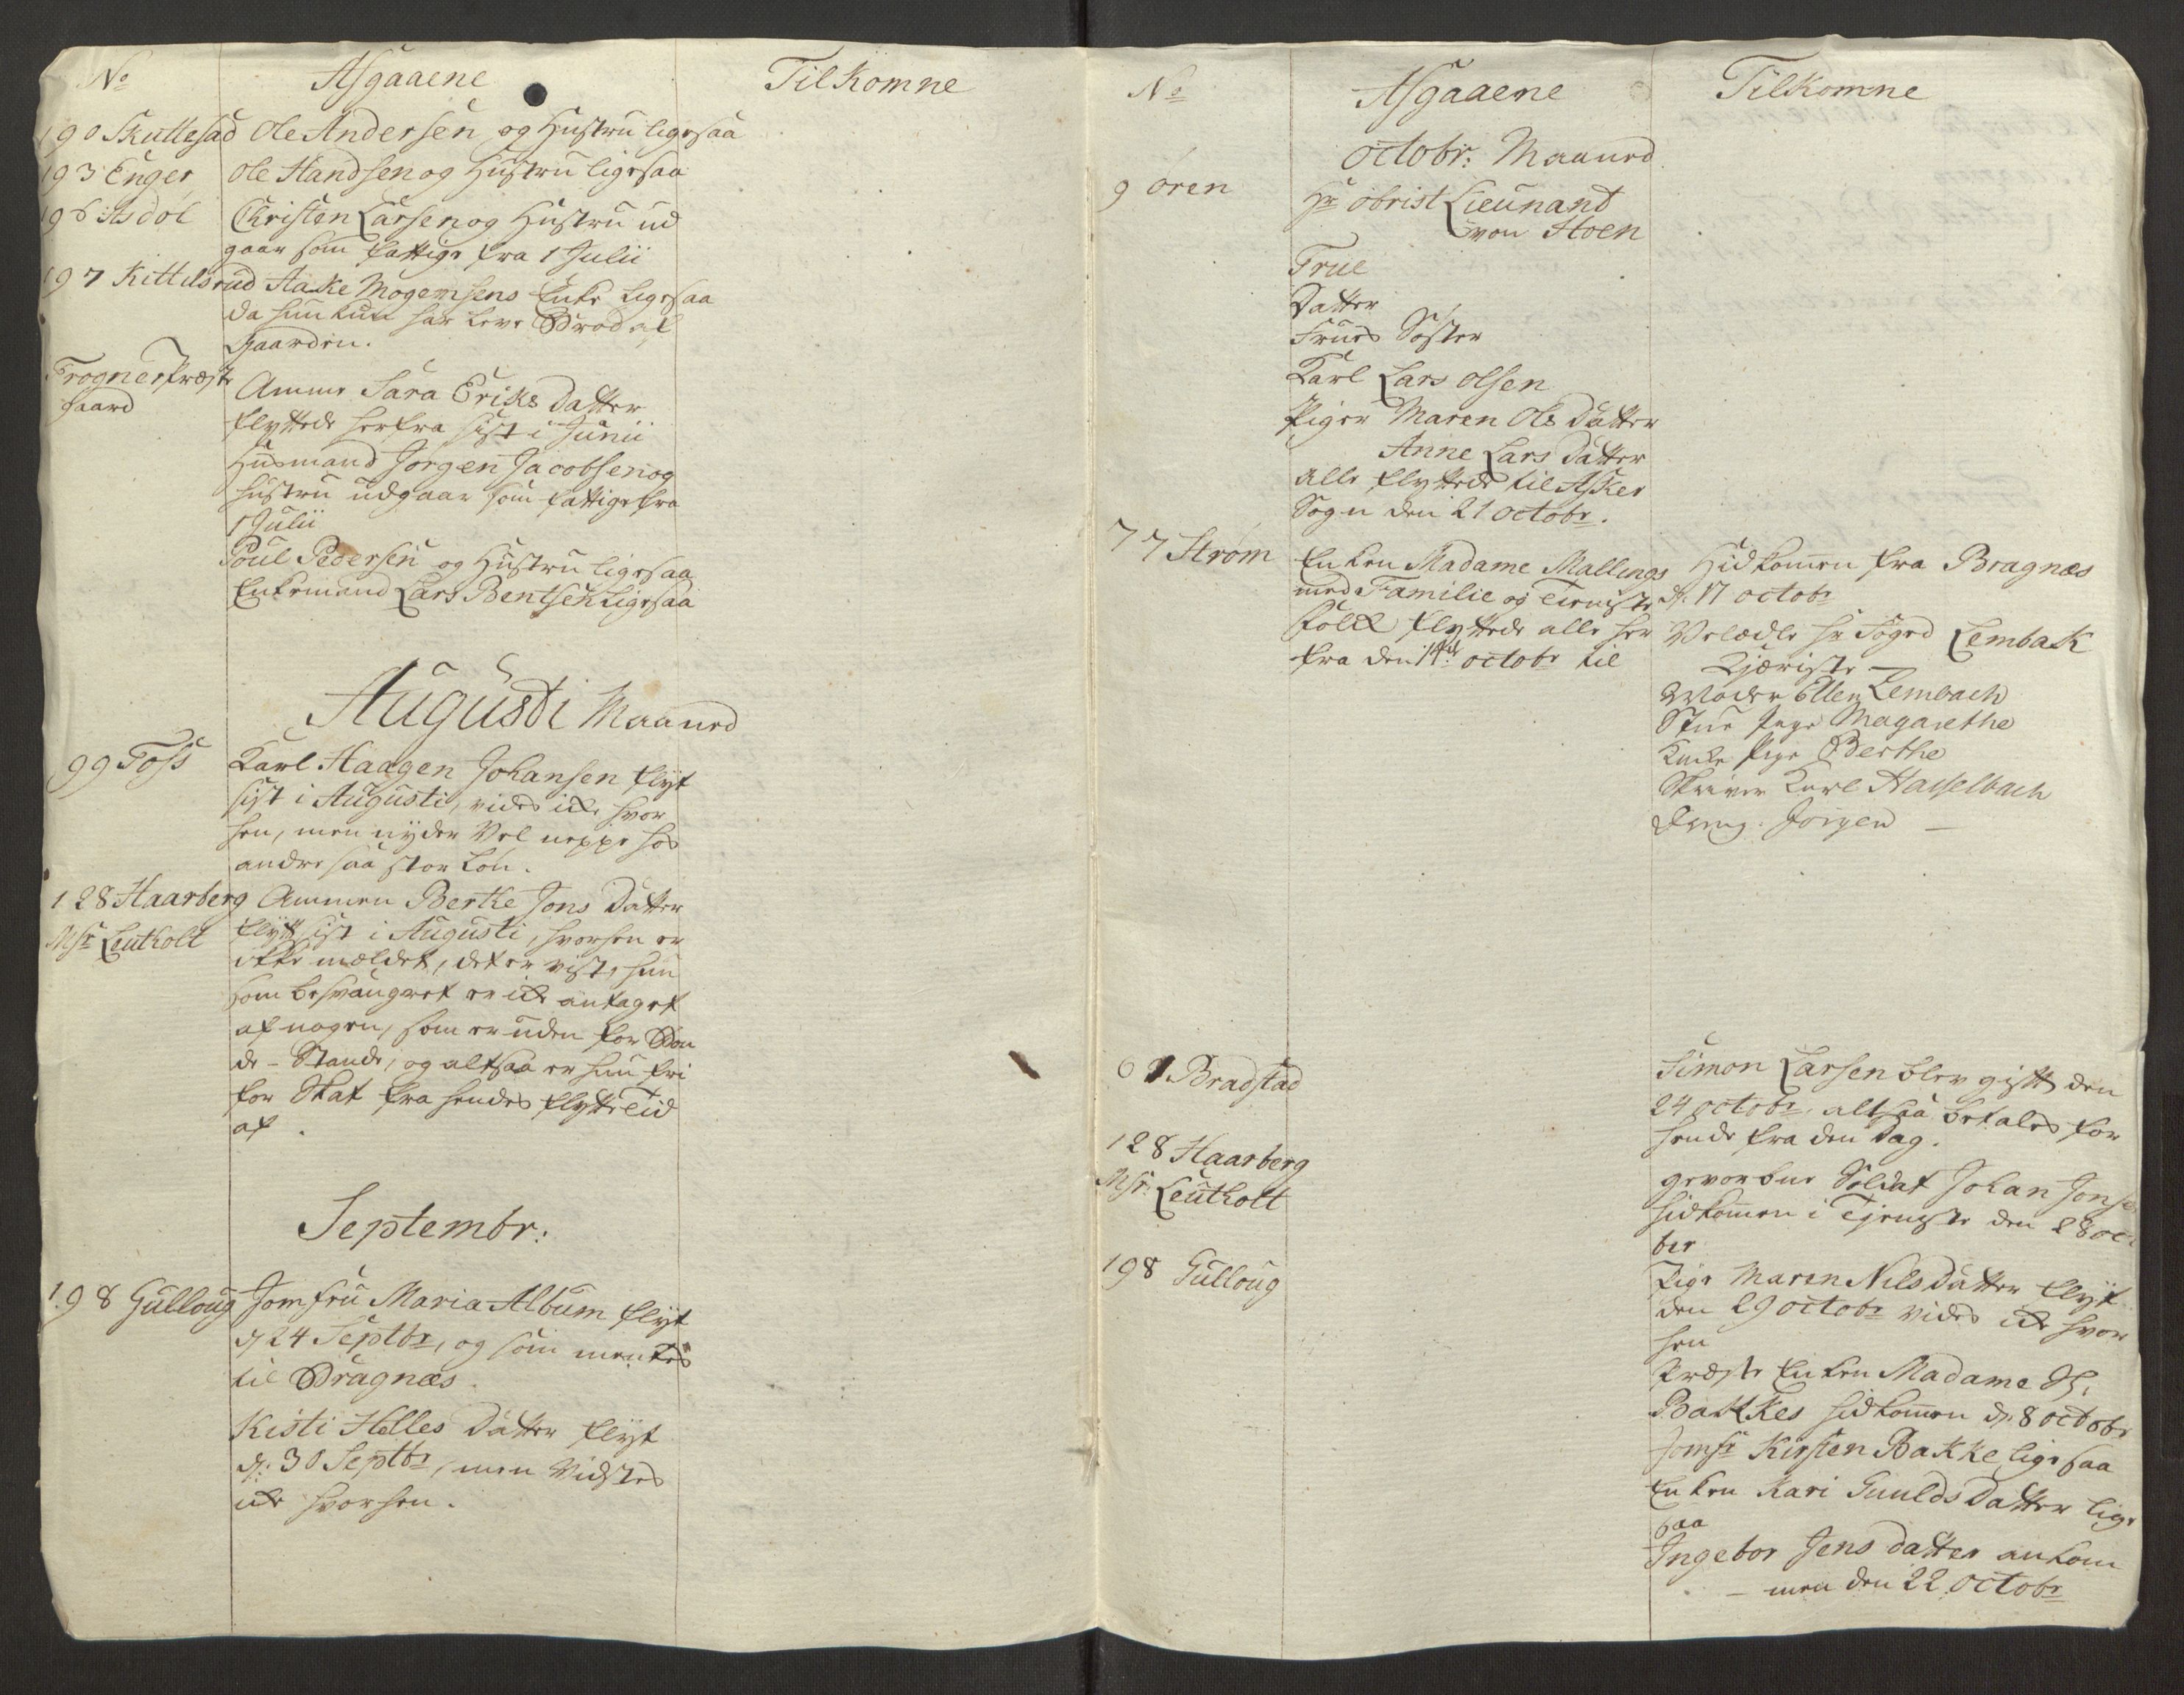 No Afgaaene Tilkomne
190 Skullestad Ole Andersen og Hustru ligesaa
193 Enger Ole Handsen og Hustru ligesaa
196 Asdøl Christen Larsen og Hustru ud
gaar som fattige fra 1 Julii
197 Kittilsrud Aake Mogensens Enke ligesaa
da hun kun har leve Brød af
Gaarden.
Frogner Præste
gaard
Amme Sara Eriks Datter
flyttede herfra sist i Junii
Husmand Jørgen Jacobsen og
Hustru udgaar som fattige fra
1 Julii
Poul Pedersen og Hustru ligesaa
Enkemand Lars Bentsen ligesaa
Augusti Maaned
99 Foss Karl Haagen Johansen flyt
sist i Augusti, vides ikke hvor
hen, men nyder Vel neppe hos
andre saa stor Løn.
128 Haarberg Ammen Berthe Jons Datter
Msr Leutholt flytt sist i Augusti, hvorhen er
ikke mældet, det er vist, hun
som besvangret er ikke antaget
af nogen, som er uden for Bon
de-Stande, og altsaa er hun fri
for Skat fra hendes flytte Tid
af.
Septembr:
198 Gulloug Jomfru Maria Album flyt
d 24 Septbr, og som mentes
til Bragnæs
Kisti Helles Datter flyt
d: 30 Septbr, men Vidstes
ikke hvorhen.
No Afgaaene Tilkomne
Octobr: Maaned
9 Ören Hr Obrist Lieunant
von Hoen
Frue
Datter
Frues Søster
Karl Lars Olsen
Piger Maren Ols Datter
Anne Lars Datter
alle flyttede til Asker
Sogn den 21 Octobr.
77 Strøm Enken Madame Mallings
med Familie og Tieniste
Folk flyttede alle her
fra den 14de Octobr til
Hidkommen fra Bragnæs
d. 17 Octobr
Velædle Hr Foged Lembak
Kjæriste
Moder Ellen Lembach
Stue Pige Magarethe
Kukke Pige Berthe
Skriver Karl Hasselbach
Dreng. Jørgen
61 Bradstad Simon Larsen blev gift den
24 Octobr. altsaa betales for
hende fra den Dag.
128 Haarberg
Msr: Leutholt
gevorbne Soldat Johan Jons
hidkommen i Tjeneste den 28 oc
ber
198 Gulloug
Pige Maren Nils Datter flyt
den 29 Octobr vides ikke hvor
hen
Præste Enken Madame
Bakkes hidkommen d. 8 Octobr
Jomfr Kirsten Bakke ligesaa
Enken Kari Gunlds Datter lige
saa
Ingebor Jens datter ankom
- men den 22 Octobr